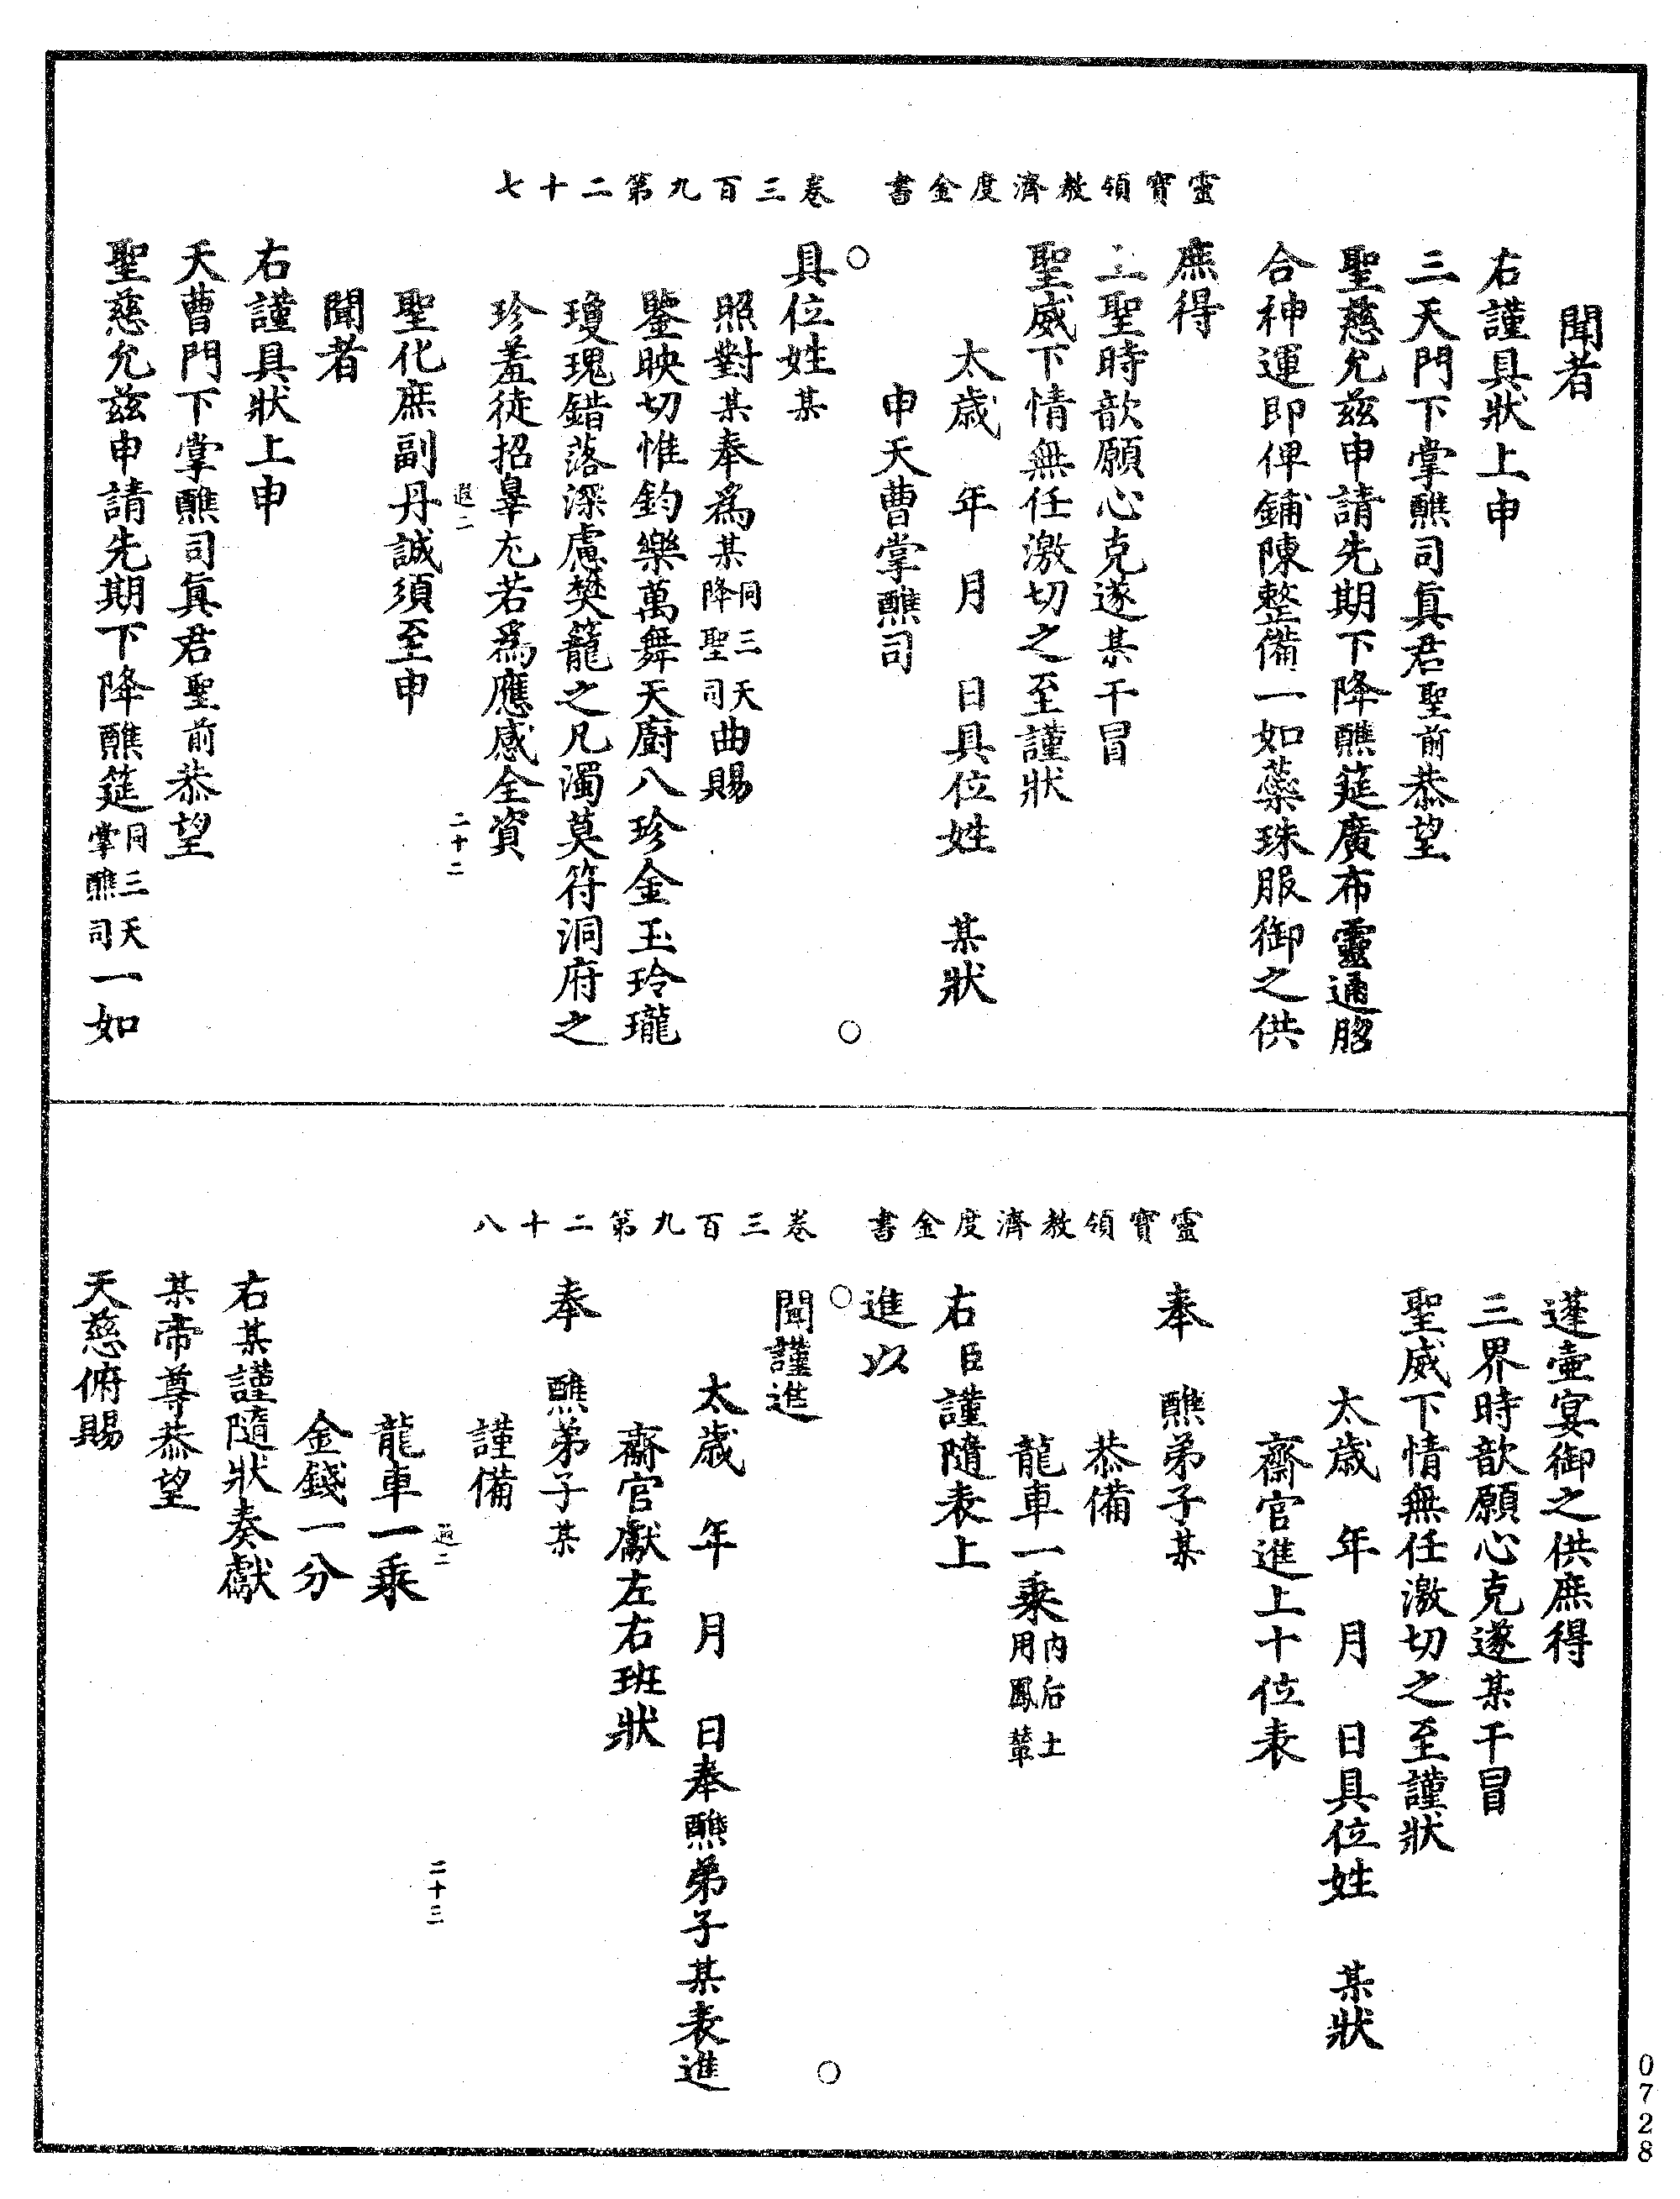 靈寶領教濟度金書　卷三百九第二十七
聞者
右謹具狀上申
三天門下掌醮司眞君聖前恭望
聖慈允茲申請先期下降醮筵廣布靈通
合神運即俾鋪陳整備一如蘂珠服御之供
庶得
上聖時歆願心克遂某干冒
聖威下情無任激切之至謹狀
太歲　年　月　日具位姓　某狀
申天曹掌醮司
具位姓某
照對某奉爲某同三天降聖司曲賜
鑒映切惟鈞樂萬舞天廚八珍金玉玲瓏
瓊瑰錯落深慮樊籠之凡濁莫符洞府之
珍羞徒招辠尤若爲應感全資
遐二　二十二
聖化庶副丹誠須至申
聞者
右謹具狀上申
天曹門下掌醮司眞君聖前恭望
聖慈允茲申請先期下降醮筵同三天掌醮司一如
靈寶領教濟度金書　卷三百九第二十八
蓬壺宴御之供庶得
三界時歆願心克遂某干冒
聖威下情無任激切之至謹狀
太歲　年　月　日具位姓　某狀
齋官進上十位表
奉　醮弟子某
恭備
龍車一乘內后土用鳳輦
右臣謹隨表上
進以
聞謹進
太歲　年　月　日奉醮弟子某表進
齋官獻左右班狀
奉　醮弟子某
謹備
遐二　二十三
龍車一乘
金錢一分
右某謹隨狀奏獻
某帝尊恭望
天慈俯賜
0728